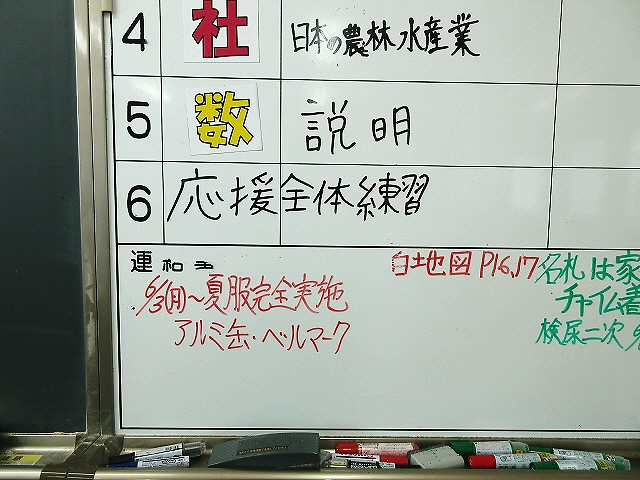 4 社 日本の農林水産業
5 数 説明
6 応援全体練習
連
6/3(月)〜夏服完全実施
アルミ缶・ベルマーク
白地図 P16,17
名札は家
チャイム着
検尿二次